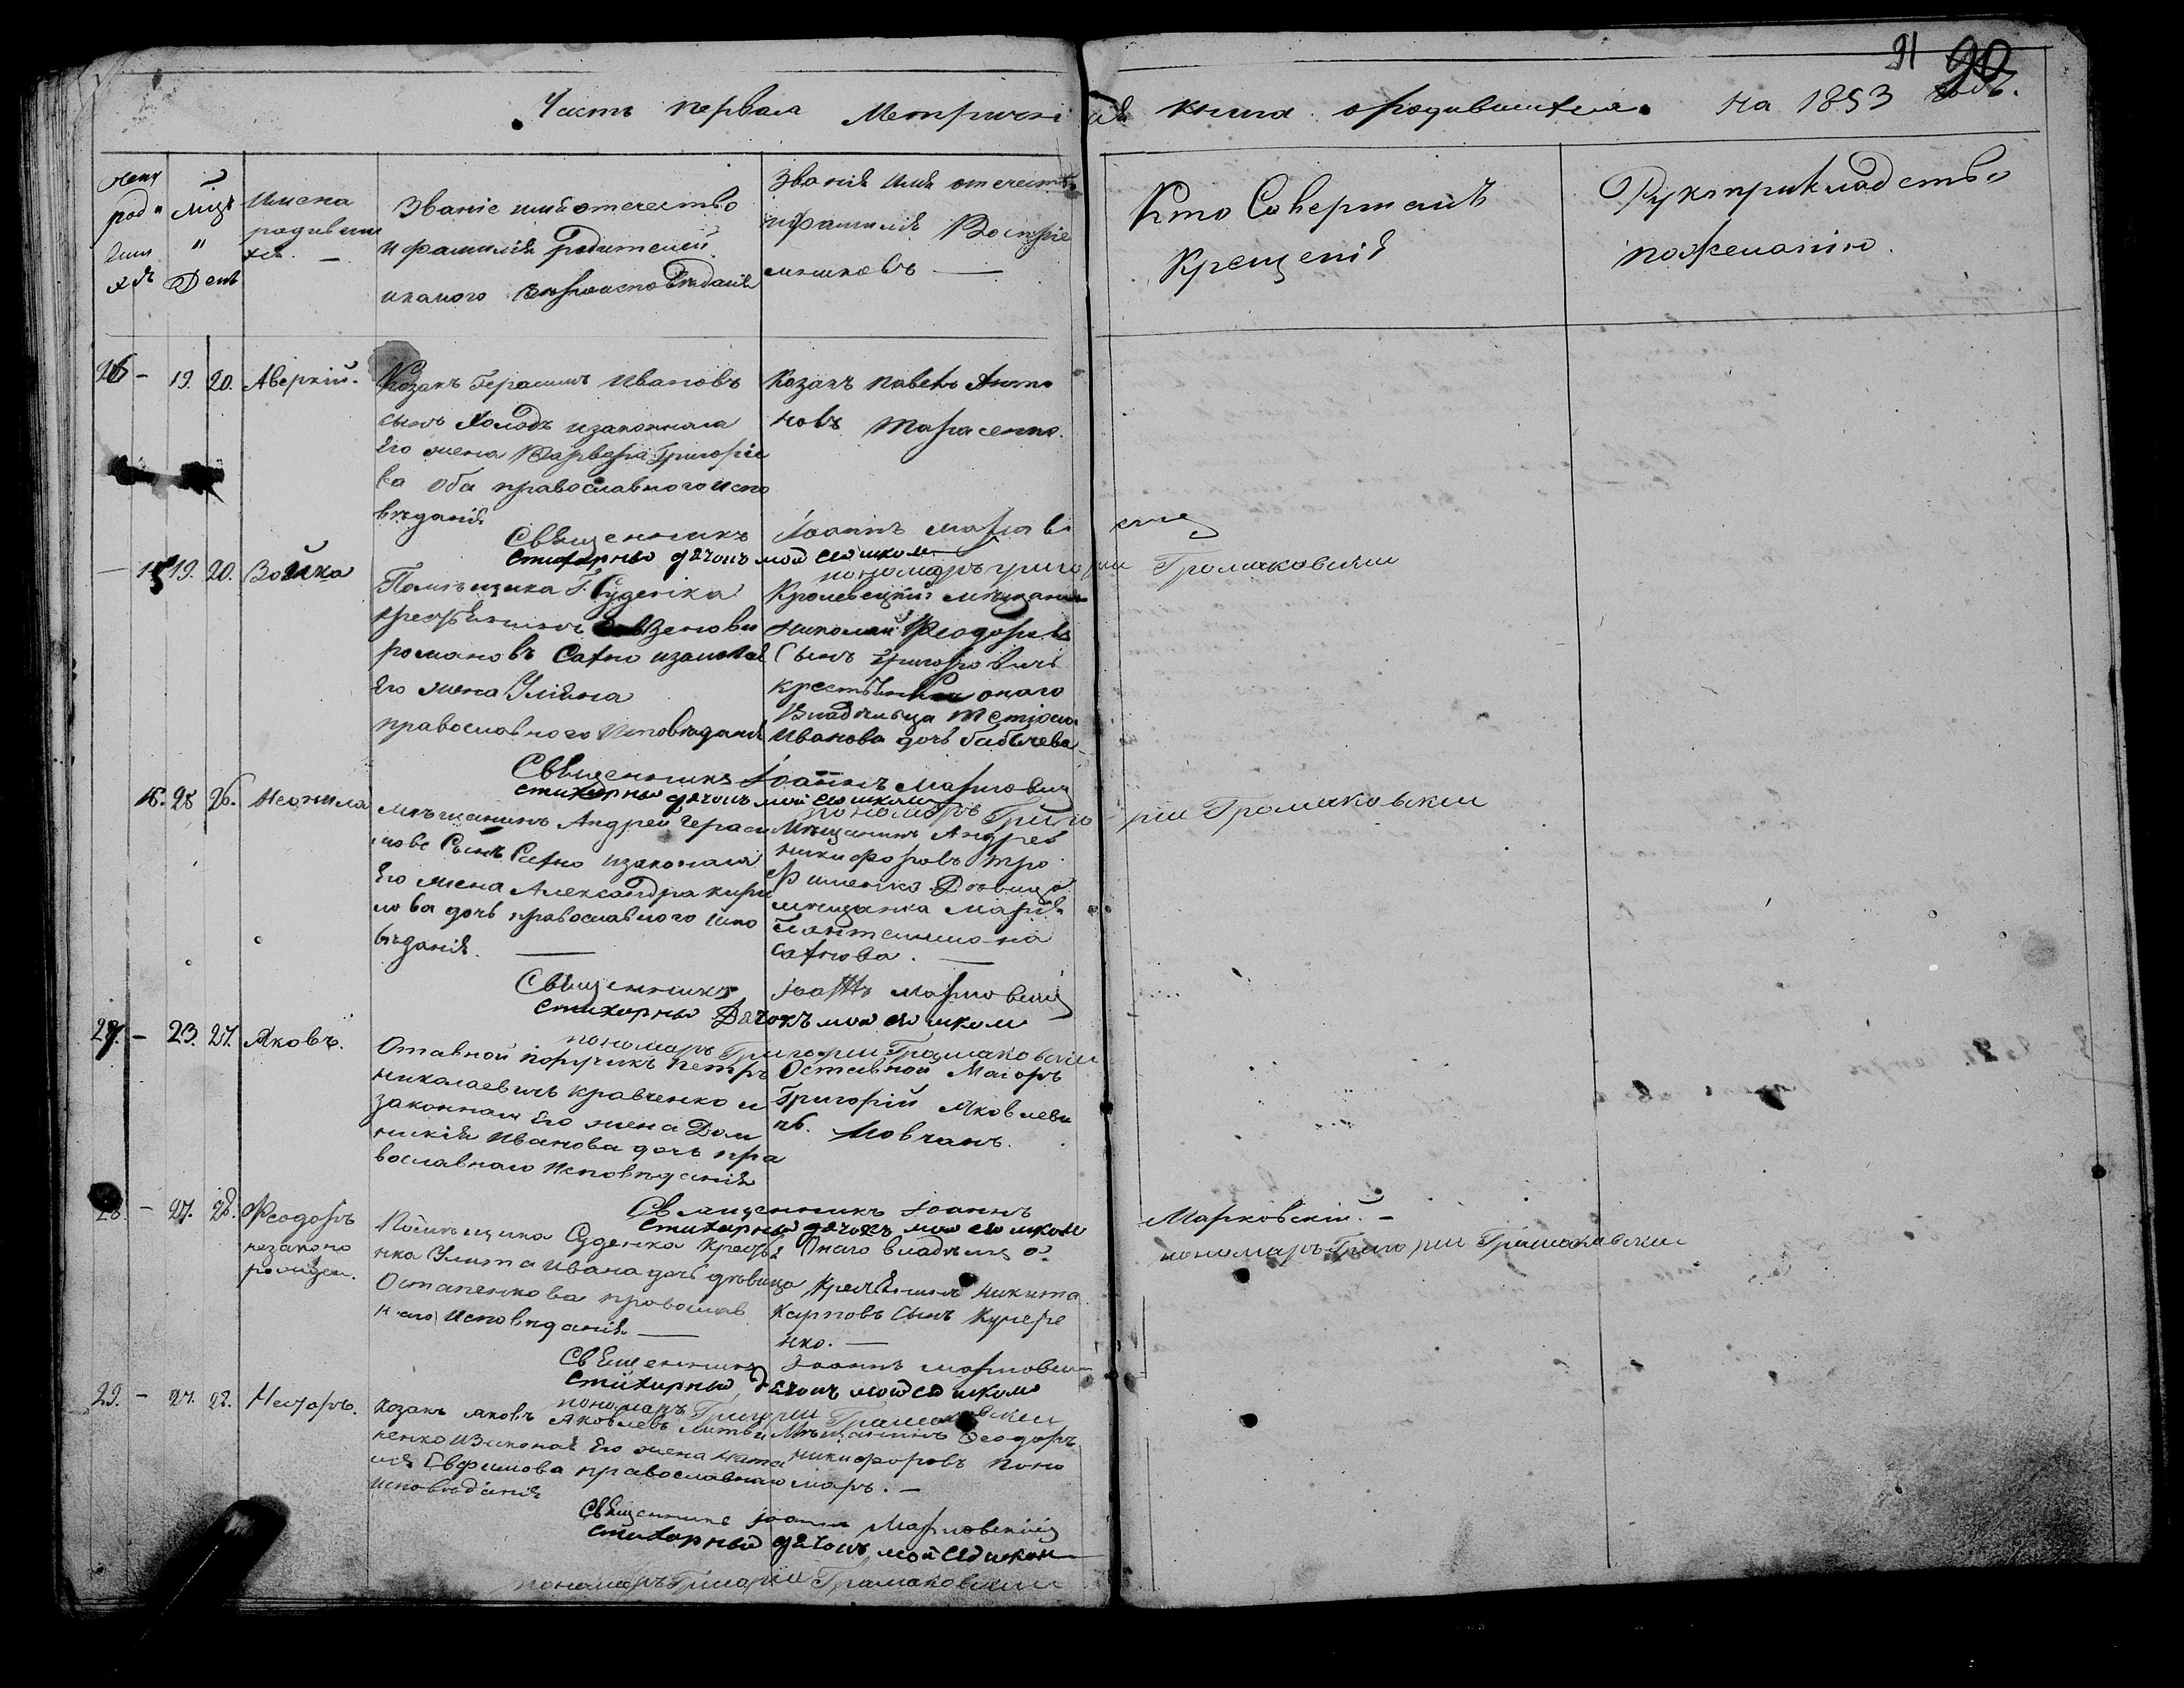 91 90
Часть первая Метрической книги о родившихся на 1853 годъ.
Звание имя отечество
и фамилия родителей
и какого вероисповедания
Имена
родивши
хся. —
День
Звания имя отечеств.
и фамилия Восприе
мниковъ —
Кто Совершалъ
Крещения
Рукоприкладство
по желанию.
26 – 19. 20. Аверкий.
Козакъ Герасимъ Ивановъ
сынъ Холодъ изаконная
Его жена Варвара Григорiе
ва оба православного испо
ведания
Козакъ Павелъ Анто
новъ Тарасенко.
Священникъ Iоаннъ Марковский
Стихарный дячокъ
пономаръ Григорий Громаковский
– 15 19. 20. Зоика
Помещика Г. Суденка
крестьянинъ Зенови
романовъ Сахно изаконная
Его жена Улияна
православного Исповедания
Кролевецкий мещанинъ
николай Феодоровъ
Сынъ Григоровичъ
крестьянка онаго
Владельца
Иванова дочь
Священникъ Iоаннъ Марковский
стихарный дячокъ
пономаръ Григорий Громаковский
16. 25 26. Неонила
мещанинъ Андрей Гераси
мовъ Сынъ Сахно изаконная
Его жена Александра кири
лова дочь православного испо
ведания. —
Мещанинъ Андрей
никифоровъ Тро
фименко Девица
мещанка Мария
Пантелимона
Сахнова. —
Священникъ Iоаннъ Марковский
стихарный Дячокъ
пономаръ Григорий Громаковский
27. – 23. 27. Яковъ.
Отавной поручикъ Петръ
николаевичъ кравченко и
законная Его жена Дом
никия Иванова дочь пра
вославнаго Исповедания
Оставной Маиоръ
Григорий Яковлеви
чъ. Мовчанъ.
Священникъ Iоаннъ Марковский. –
Стихарный дячокъ
пономаръ Григорий Громаковский
28. – 27. 28. Феодоръ
незаконо
рожден.
Помещика Суденка крестья
нка Улита Ивана дочь девица
Остапенкова православ
наго Исповедания —
Онаго владельца
крестьянинъ никита
Карповъ Сынъ Кучере
нко. —
Священникъ Iоаннъ Марковский
Стихарный дячокъ
пономаръ Григорий Громаковский
29. – 27. 28. Несторъ.
Козакъ яковъ Яковлевъ Литви
ненко изаконая Его жена ната
лия Евфимова православнаго
исповедания
Мещанинъ Феодоръ
никифоровъ Поно
маръ. –
Священникъ Iоаннъ Марковский
стихарный дячокъ
пономаръ Григорий Громаковский